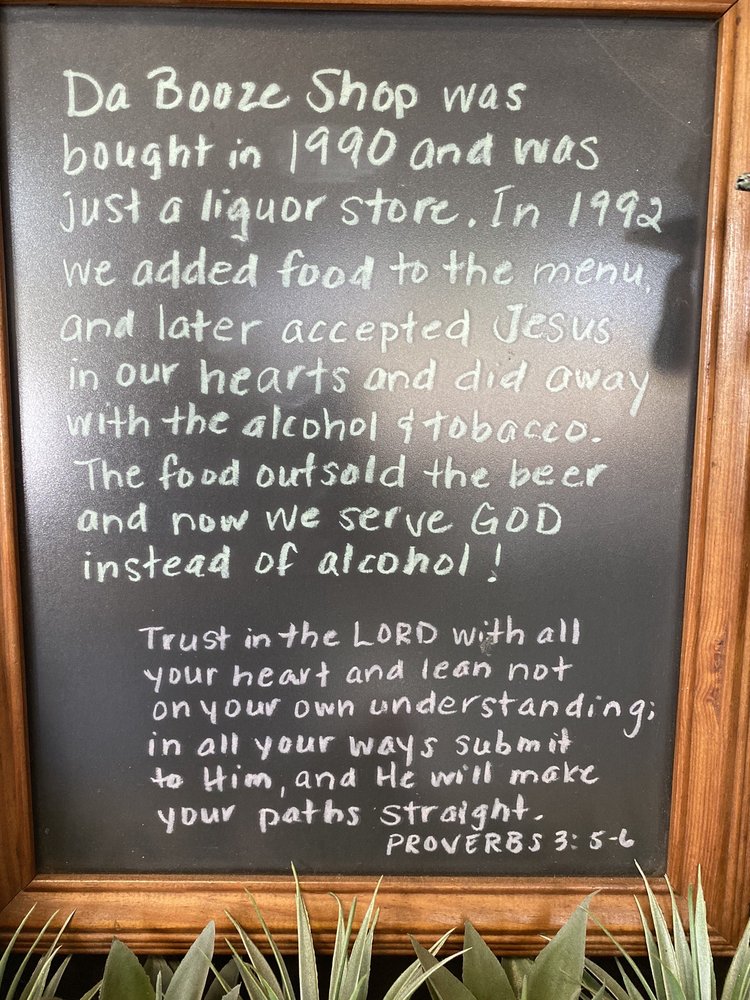 Da Booze Shop was
bought in 1990 and was
just a liquor store. In 1992
we added food to the menu,
and later accepted Jesus
in our hearts and did away
with the alcohol & tobacco.
The food outsold the beer
and now we serve GOD
instead of alcohol!
Trust in the LORD with all
your heart and lean not
on your own understanding;
in all your ways submit
to Him, and He will make
your paths straight.
PROVERBS 3: 5-6